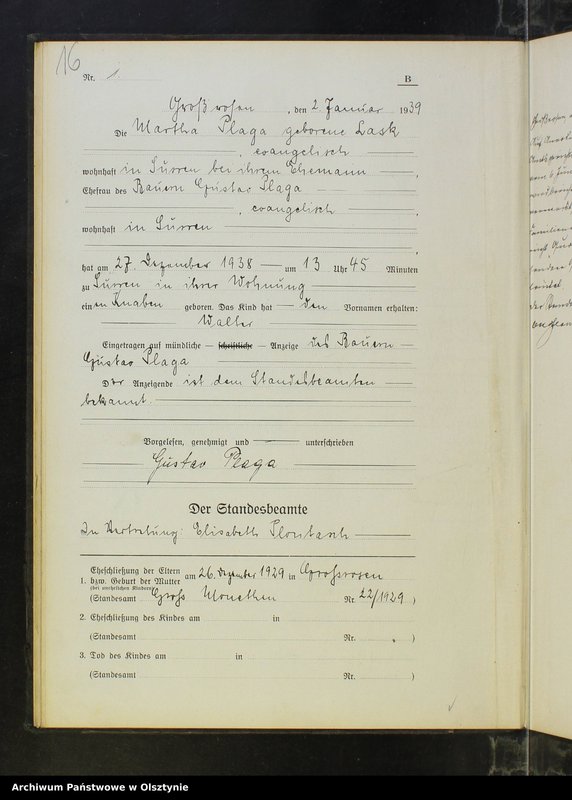 16
Nr. 1
B
Großrosen, den 2. Januar 1939
Die Martha Plaga geborene Lask
, evangelisch
wohnhaft in Surren bei ihrem Ehemann,
Ehefrau des Bauern Gustav Plaga
, evangelisch,
wohnhaft in Surren
,
hat am 27. Dezember 1938 um 13 Uhr 45 Minuten
zu Surren in ihrer Wohnung
einen Knaben geboren. Das Kind hat den Vornamen erhalten:
Walter
Eingetragen auf mündliche – schriftliche – Anzeige des Bauern
Gustav Plaga
Der Anzeigende ist dem Standesbeamten
bekannt.
Vorgelesen, genehmigt und unterschrieben
Gustav Plaga
Der Standesbeamte
In Vertretung: Elisabeth
1. Eheschließung der Eltern
bzw. Geburt der Mutter am 26. Dezember 1929 in Großrosen
(bei unehelichen Kindern)
(Standesamt Groß Nr. 22/1929)
2. Eheschließung des Kindes am in
(Standesamt Nr. )
3. Tod des Kindes am in
(Standesamt Nr. )
Archiwum Państwowe w Olsztynie